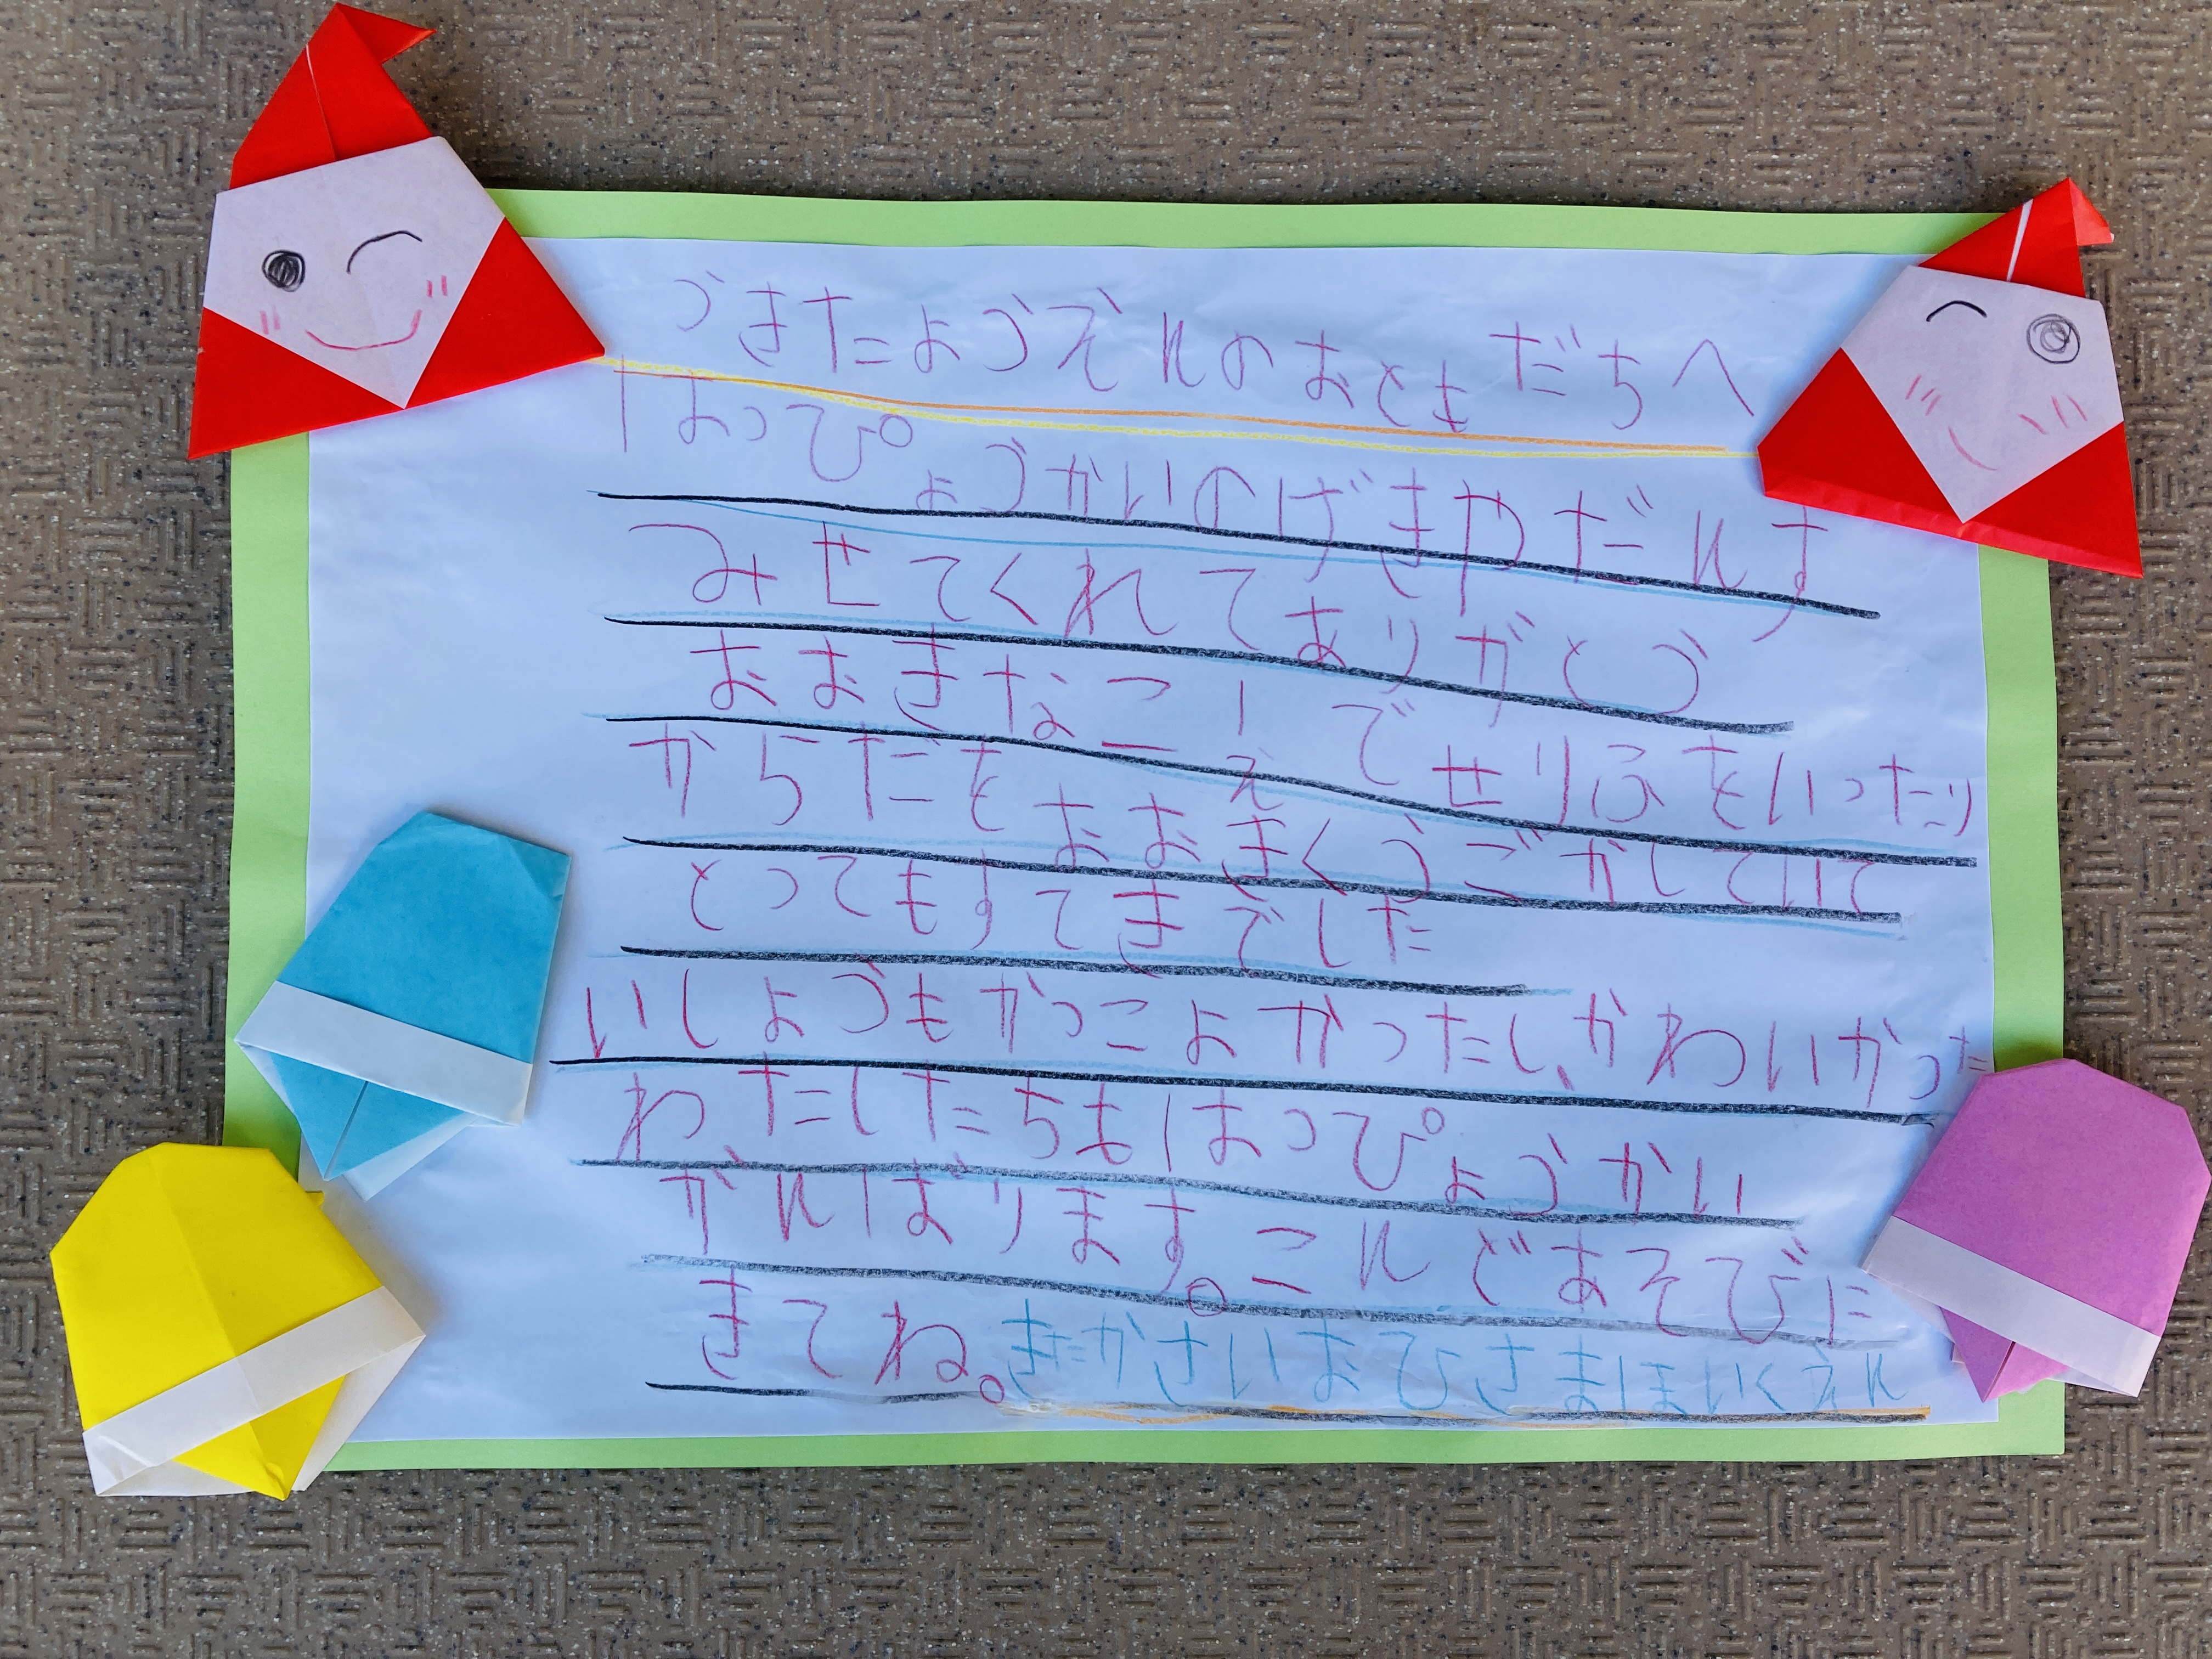 うきたようえんのおともだちへ
はっぴょうかいのげきやだんす
みせてくれてありがとう
おおきなこえでせりふをいったり
からだをおおきくうごかしていて
とってもすてきでした
いしょうもかっこよかったし、かわいかった
わたしたちもはっぴょうかい
がんばります。こんどあそびに
きてね。きたかさいおひさまほいくえん